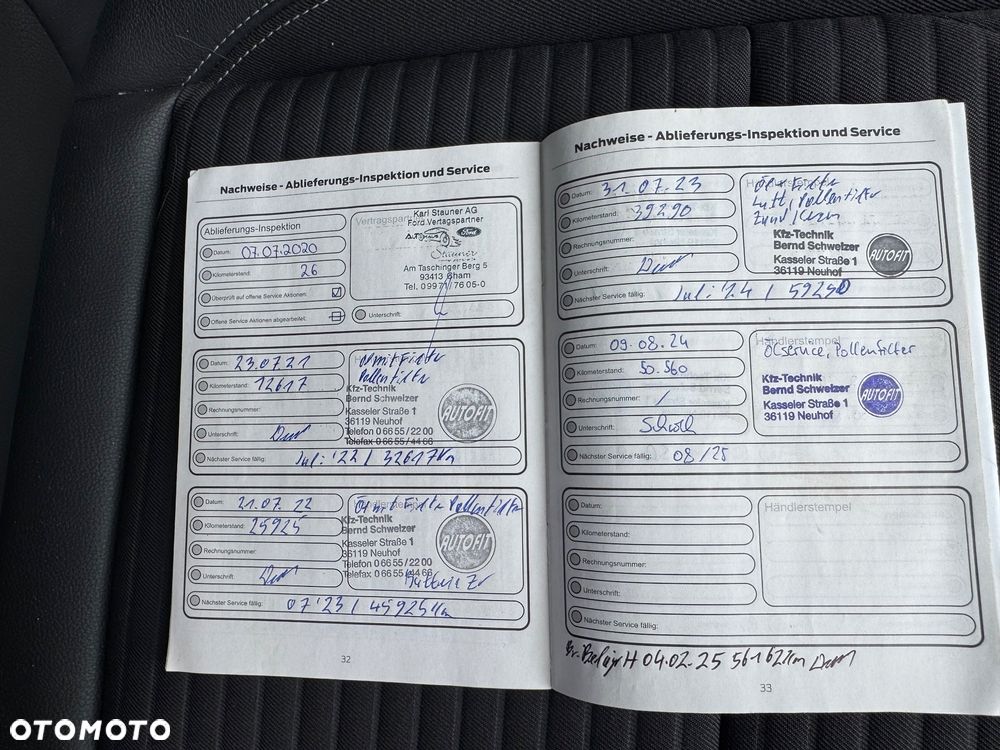 Nachweise - Ablieferungs-Inspektion und Service
Ablieferungs-Inspektion
Datum: 07.07.2020
Kilometerstand: 26
Überprüft auf offene Service Aktionen:
Offene Service Aktionen abgearbeitet:
Karl Stauner AG
Ford Vertagspartner
Ford
Stauner
Am Taschinger Berg 5
93413 Cham
Tel. 09971/76 05-0
Unterschrift:
Datum: 23.07.21
Kilometerstand: 12617
Rechnungsnummer:
Unterschrift:
Öl mit Filter
Pollenfilter
Kfz-Technik
Bernd Schweizer
Kasseler Straße 1
36119 Neuhof
Telefon 0 66 55 / 22 00
Telefax 0 66 55 / 44 66
AUTOFIT
Nächster Service fällig: Juli '22 / 32617 Km
Datum: 21.07.22
Kilometerstand: 25925
Rechnungsnummer:
Unterschrift:
Öl mit Filter Pollenfilter
Händlerstempel
Kfz-Technik
Bernd Schweizer
Kasseler Straße 1
36119 Neuhof
Telefon 0 66 55 / 22 00
Telefax 0 66 55 / 44 66
AUTOFIT
Nächster Service fällig: 07'23 / 45925 Km
32
Nachweise - Ablieferungs-Inspektion und Service
Datum: 31.07.23
Kilometerstand: 39290
Rechnungsnummer:
Unterschrift:
Händlerstempel
Öl + Filter
Luft, Pollenfilter
Zündkerzen
Kfz-Technik
Bernd Schweizer
Kasseler Straße 1
36119 Neuhof
AUTOFIT
Nächster Service fällig: Juli '24 / 59290
Datum: 09.08.24
Kilometerstand: 50.560
Rechnungsnummer: /
Unterschrift:
Händlerstempel
Ölservice, Pollenfilter
Kfz-Technik
Bernd Schweizer
Kasseler Straße 1
36119 Neuhof
AUTOFIT
Nächster Service fällig: 08/25
Datum:
Kilometerstand:
Rechnungsnummer:
Unterschrift:
Händlerstempel
Nächster Service fällig:
04.02.25 56162 Km
33
OTOMOTO